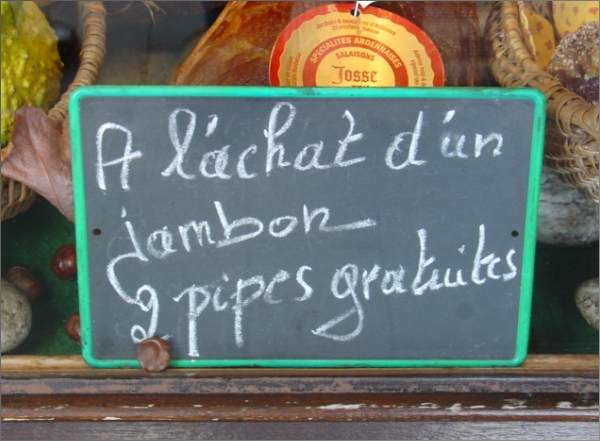 SPÉCIALITÉS ARDENNAISES
SALAISONS
Josse
A l'achat d'un
jambon
2 pipes gratuites